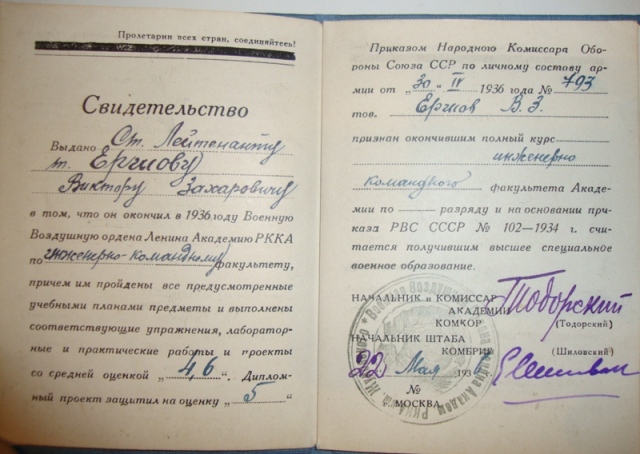 Пролетарии всех стран, соединяйтесь!
Свидетельство
Выдано Ст. Лейтенанту
т. Ершову
Виктору Захаровичу
в том, что он окончил в 1936 году Военную
Воздушную ордена Ленина Академию РККА
по инженерно-командному факультету,
причем им пройдены все предусмотренные
учебными планами предметы и выполнены
соответствующие упражнения, лаборатор-
ные и практические работы и проекты
со средней оценкой „4,6“. Диплом-
ный проект защитил на оценку „5“
Приказом Народного Комиссара Обо-
роны Союза ССР по личному составу ар-
мии от „30“ IV 1936 года № 793
тов. Ершов В. З.
признан окончившим полный курс
инженерно
командного факультета Акаде-
мии по разряду и на основании при-
каза РВС СССР № 102—1934 г. счи-
тается получившим высшее специальное
военное образование.
НАЧАЛЬНИК и КОМИССАР
АКАДЕМИИ
КОМКОР Тодорский
(Тодорский)
НАЧАЛЬНИК ШТАБА
КОМБРИГ (Шиловский)
„22“ Мая 193
№
г. МОСКВА